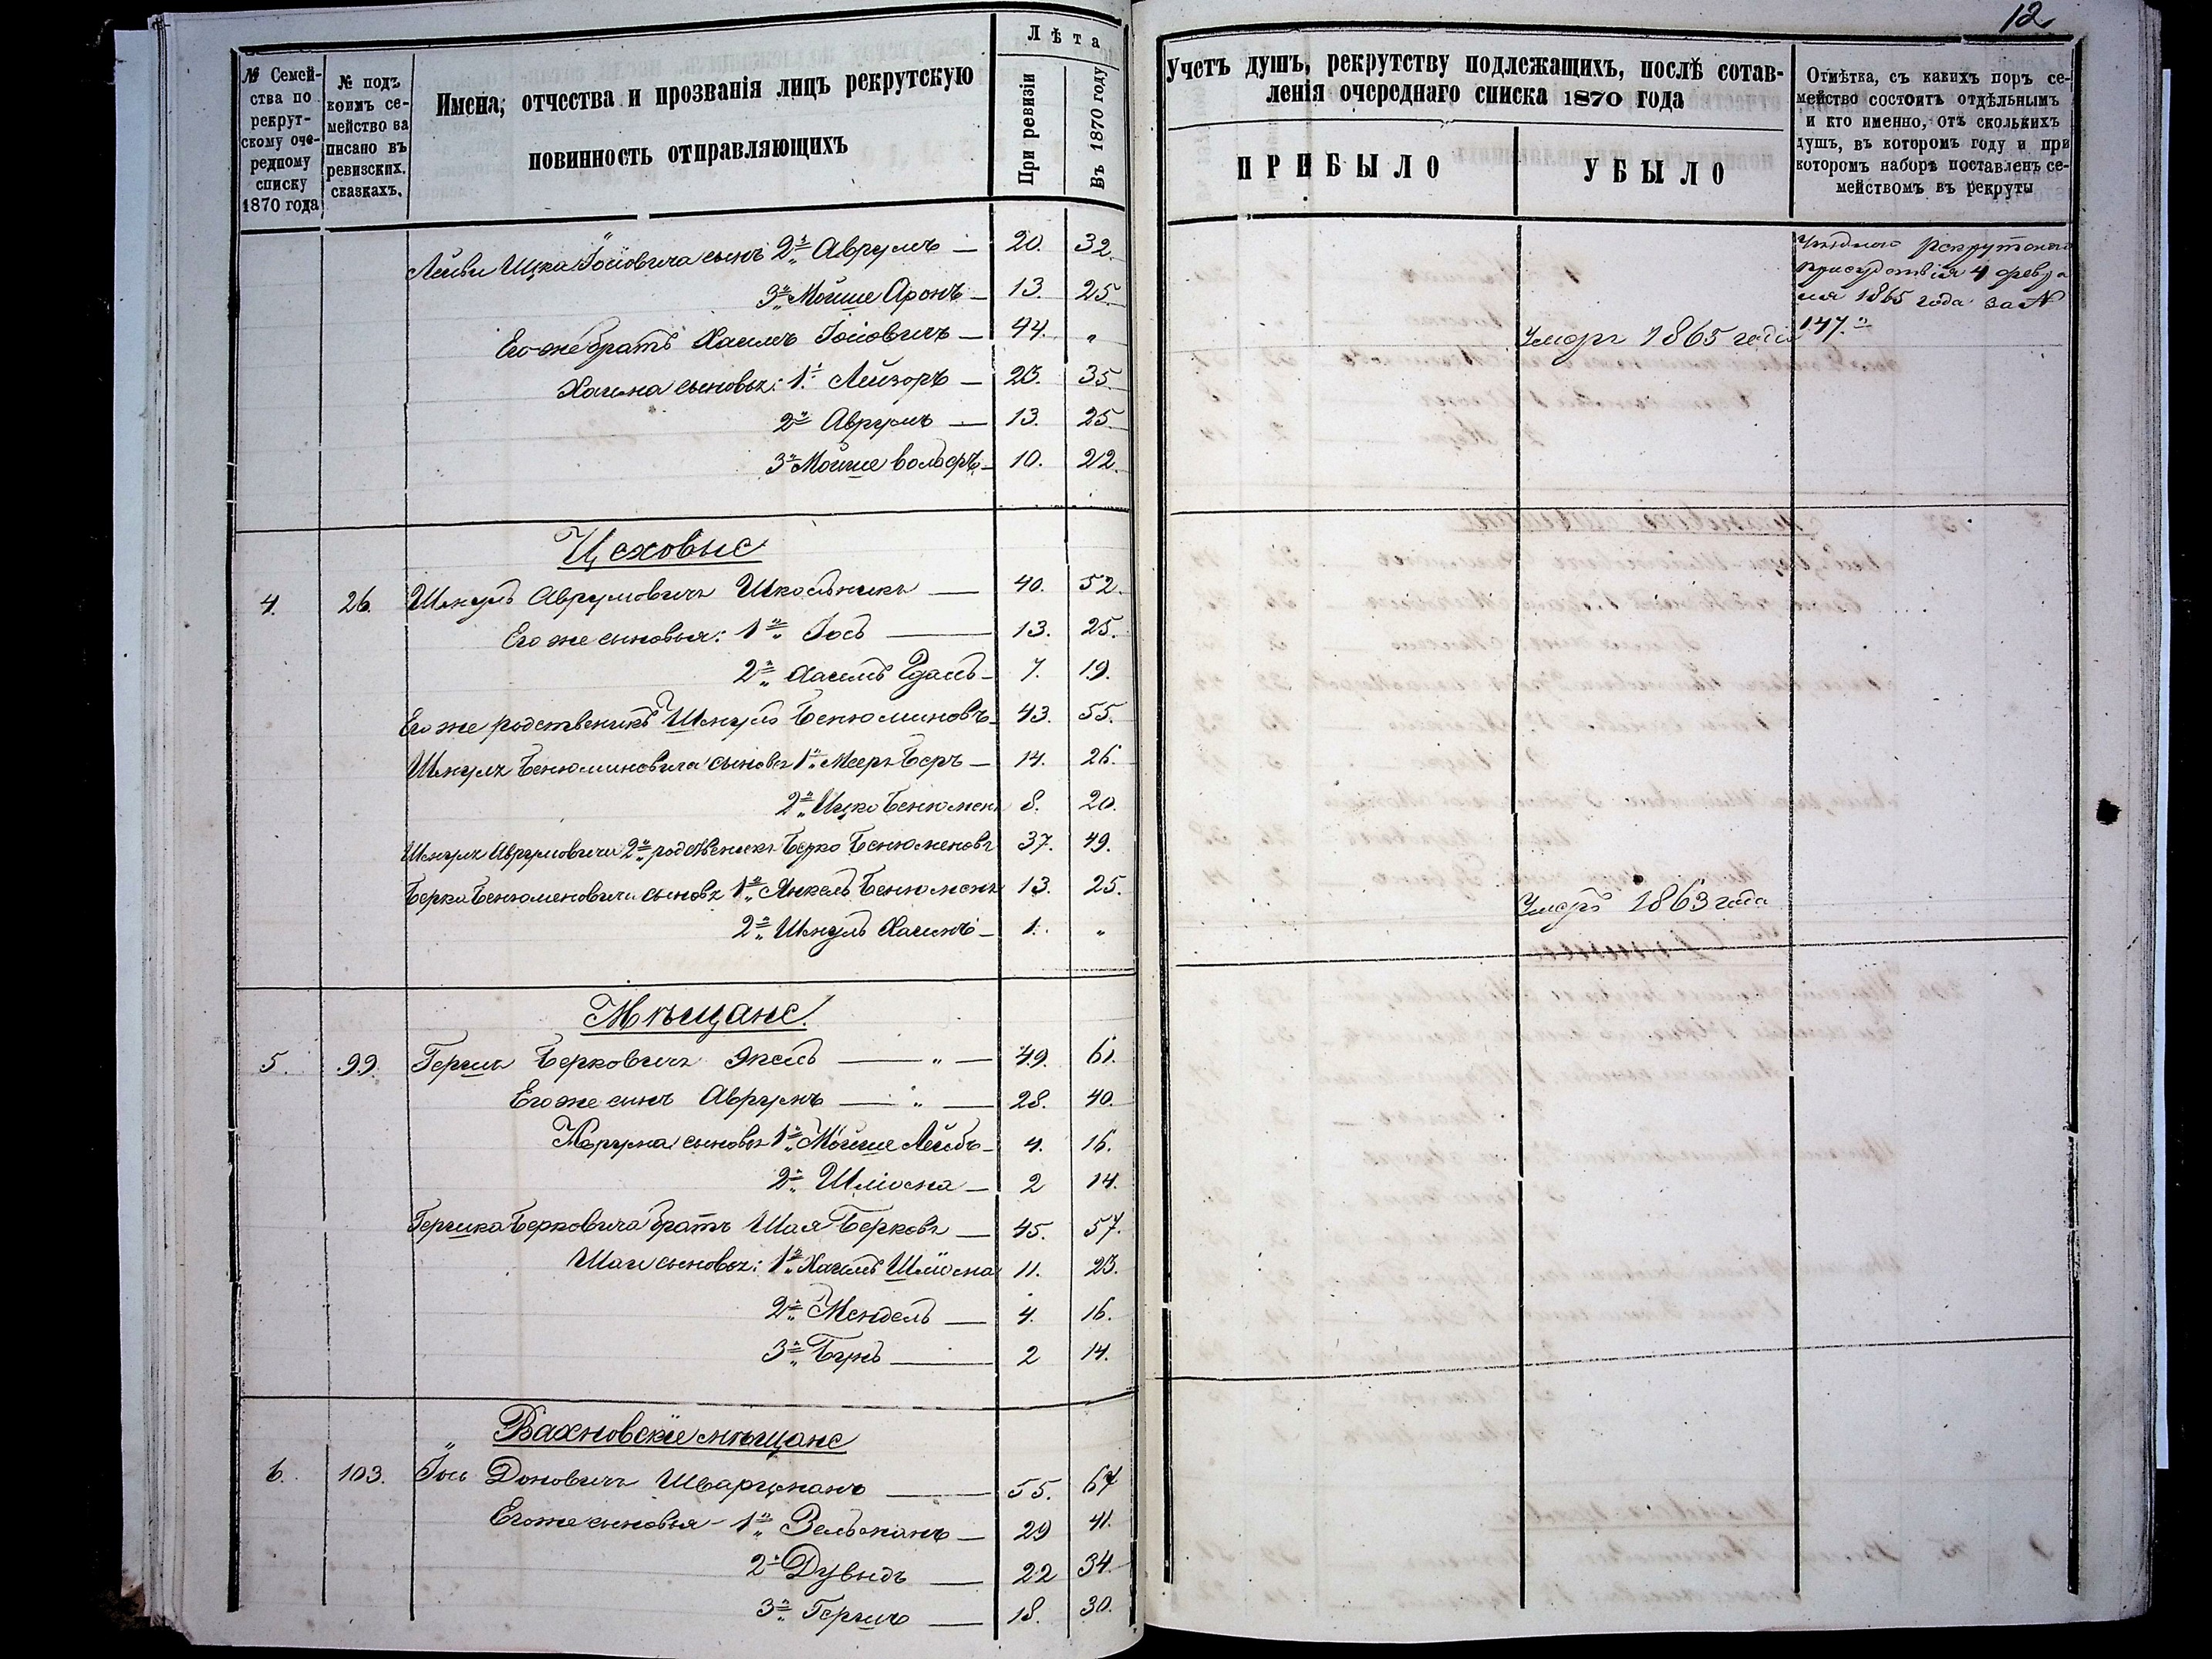 12
№ Семей-
ства по
рекрут-
скому оче-
редному
списку
1870 года
№ подъ
коимъ се-
мейство за
писано въ
ревизских.
сказкахъ.
Имена, отчества и прозванія лицъ рекрутскую
повинность отправляющихъ
Лѣта
При ревизіи
Въ 1870 году
Учетъ душъ, рекрутству подлежащихъ, послѣ сотав-
ленія очереднаго списка 1870 года
ПРИБЫЛО
УБЫЛО
Отмѣтка, съ какихъ поръ се-
мейство состоитъ отдѣльнымъ
и кто именно, отъ сколькихъ
душъ, въ которомъ году и при
которомъ наборѣ поставленъ се-
мействомъ въ рекруты
Лейби Ицка Іосіовича сынъ 2й Аврумъ — 20. 32.
3й Мойше Аронъ — 13. 25.
Его же братъ Хаимъ Іосіовичъ — 44. "
Хаима сыновья: 1й Лейзоръ — 23. 35.
2й Аврумъ — 13. 25.
3й Мойше Вольфъ — 10. 22.
Умеръ 1865 года
рекрутскаго
присудствія 4 февра
ля 1865 года за №
147."
Цеховые
4. 26. Шмуль Аврумовичъ Школьникъ — 40. 52.
Его же сыновья: 1й Іось — 13. 25.
2й Хаимъ — 7. 19.
Его же родственикъ Шмуль Бенюминовъ — 43. 55.
Шмуля Бенюминовича сыновья 1й Мееръ Беръ — 14. 26.
2й Ицко Бенюменъ 8. 20.
Шмуля Аврумовича 2й родственикъ Берко Бенюменовъ 37. 49.
Берка Бенюменовича сыновья 1й Янкель Бенюменъ 13. 25.
2й Шмуль Хаимъ — 1. "
Умеръ 1863 года
Мѣщане.
5. 99. Гершъ Берковичъ — " — 49. 61.
Его же сынъ Аврумъ — " — 28. 40.
Аврума сыновья 1й Мойше Лейбъ — 4. 16.
2й Шліома — 2 14.
Гершка Берковича братъ Шая Берковъ — 45. 57.
Шаи сыновья: 1й Хаимъ Шліома 11. 23.
2й Мендель — 4. 16.
3й — 2 14.
Вахновскіе мѣщане
6. 103. Іось Доновичъ Шварцманъ — 55. 67
Его же сыновья — 1й Зельманъ — 29 41.
2й Дувидъ — 22 34.
3й Гершъ — 18. 30.